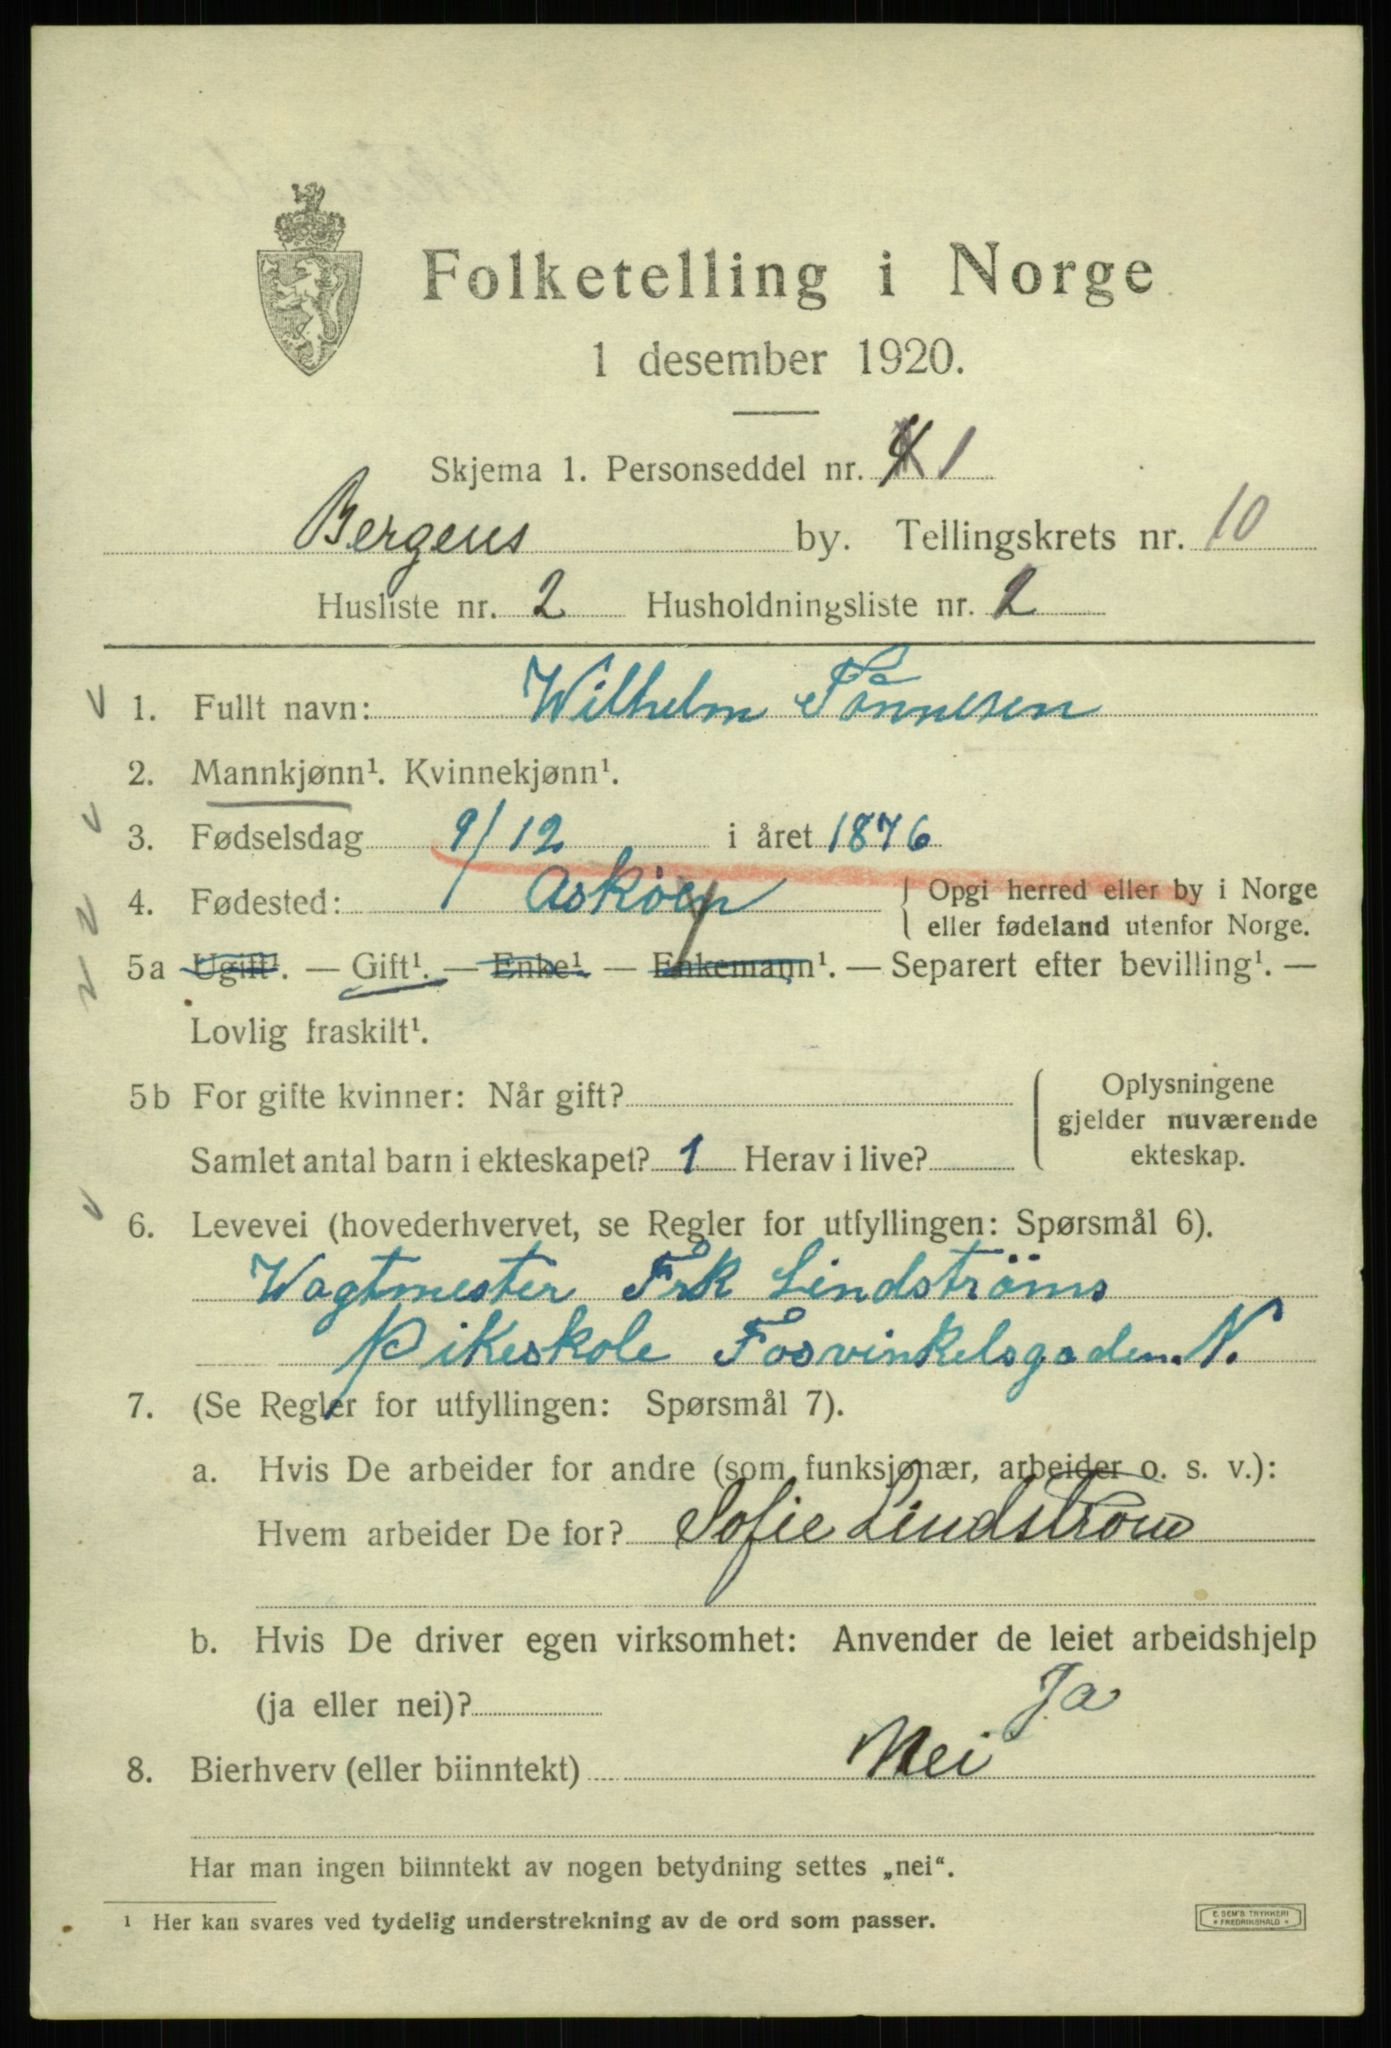 Folketelling i Norge
1 desember 1920.
Skjema 1. Personseddel nr. 1
Bergens by. Tellingskrets nr. 10
Husliste nr. 2 Husholdningsliste nr.
1. Fullt navn: Wilhelm Tönnesen
2. Mannkjønn¹. Kvinnekjønn¹.
3. Fødselsdag 9/12 i året 1876
4. Fødested: Askøen { Opgi herred eller by i Norge
eller fødeland utenfor Norge.
5a Ugift¹. — Gift¹. — Enke¹ — Enkemann¹. — Separert efter bevilling¹. —
Lovlig fraskilt¹.
5b For gifte kvinner: Når gift?
Samlet antal barn i ekteskapet? 1 Herav i live?
{ Oplysningene
gjelder nuværende
ekteskap.
6. Levevei (hovederhvervet, se Regler for utfyllingen: Spørsmål 6).
Wagtmester Frk Lindströms
Pikeskole Fosvinkelsgaden. N.
7. (Se Regler for utfyllingen: Spørsmål 7).
a. Hvis De arbeider for andre (som funksjonær, arbeider o. s. v.):
Hvem arbeider De for? Sofie Lindstrøm
b. Hvis De driver egen virksomhet: Anvender de leiet arbeidshjelp
(ja eller nei)? Ja
8. Bierhverv (eller biinntekt) Nei
Har man ingen biinntekt av nogen betydning settes „nei“.
¹ Her kan svares ved tydelig understrekning av de ord som passer.
E. SEM'S TRYKKERI
* FREDRIKSHALD *